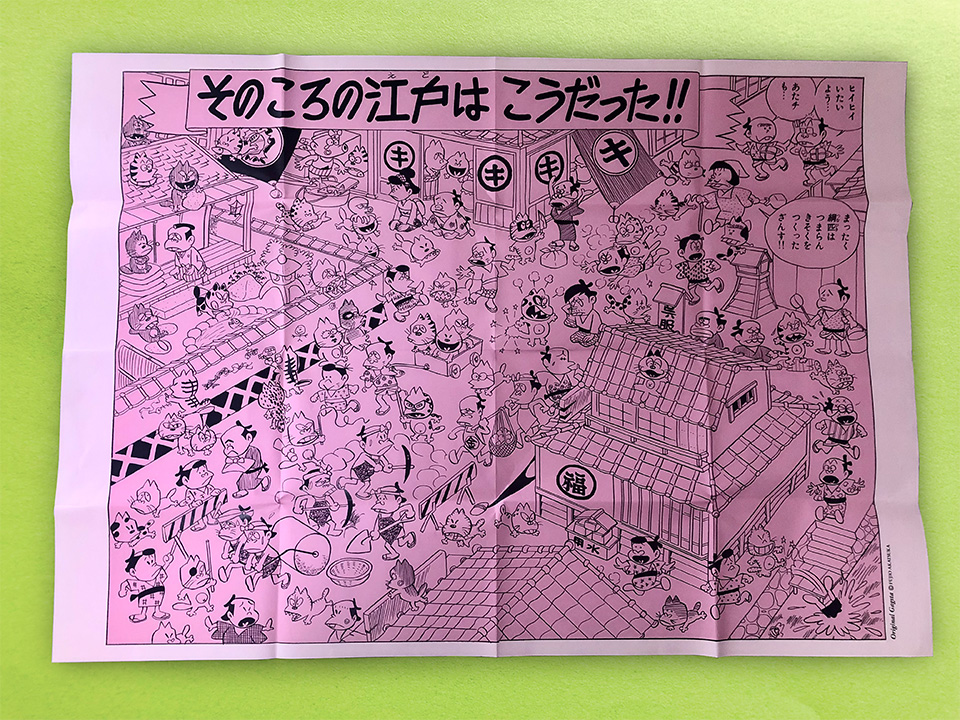 えど
そのころの江戸は こうだった!!
ヒイヒイ
いたい
よう…
あたチ
も…
キ
キ
キ
キ
まったく
綱吉は
つまらん
きそくを
つくった
ざんす!!
呉服
福
用水
© FUJIO AKATSUKA